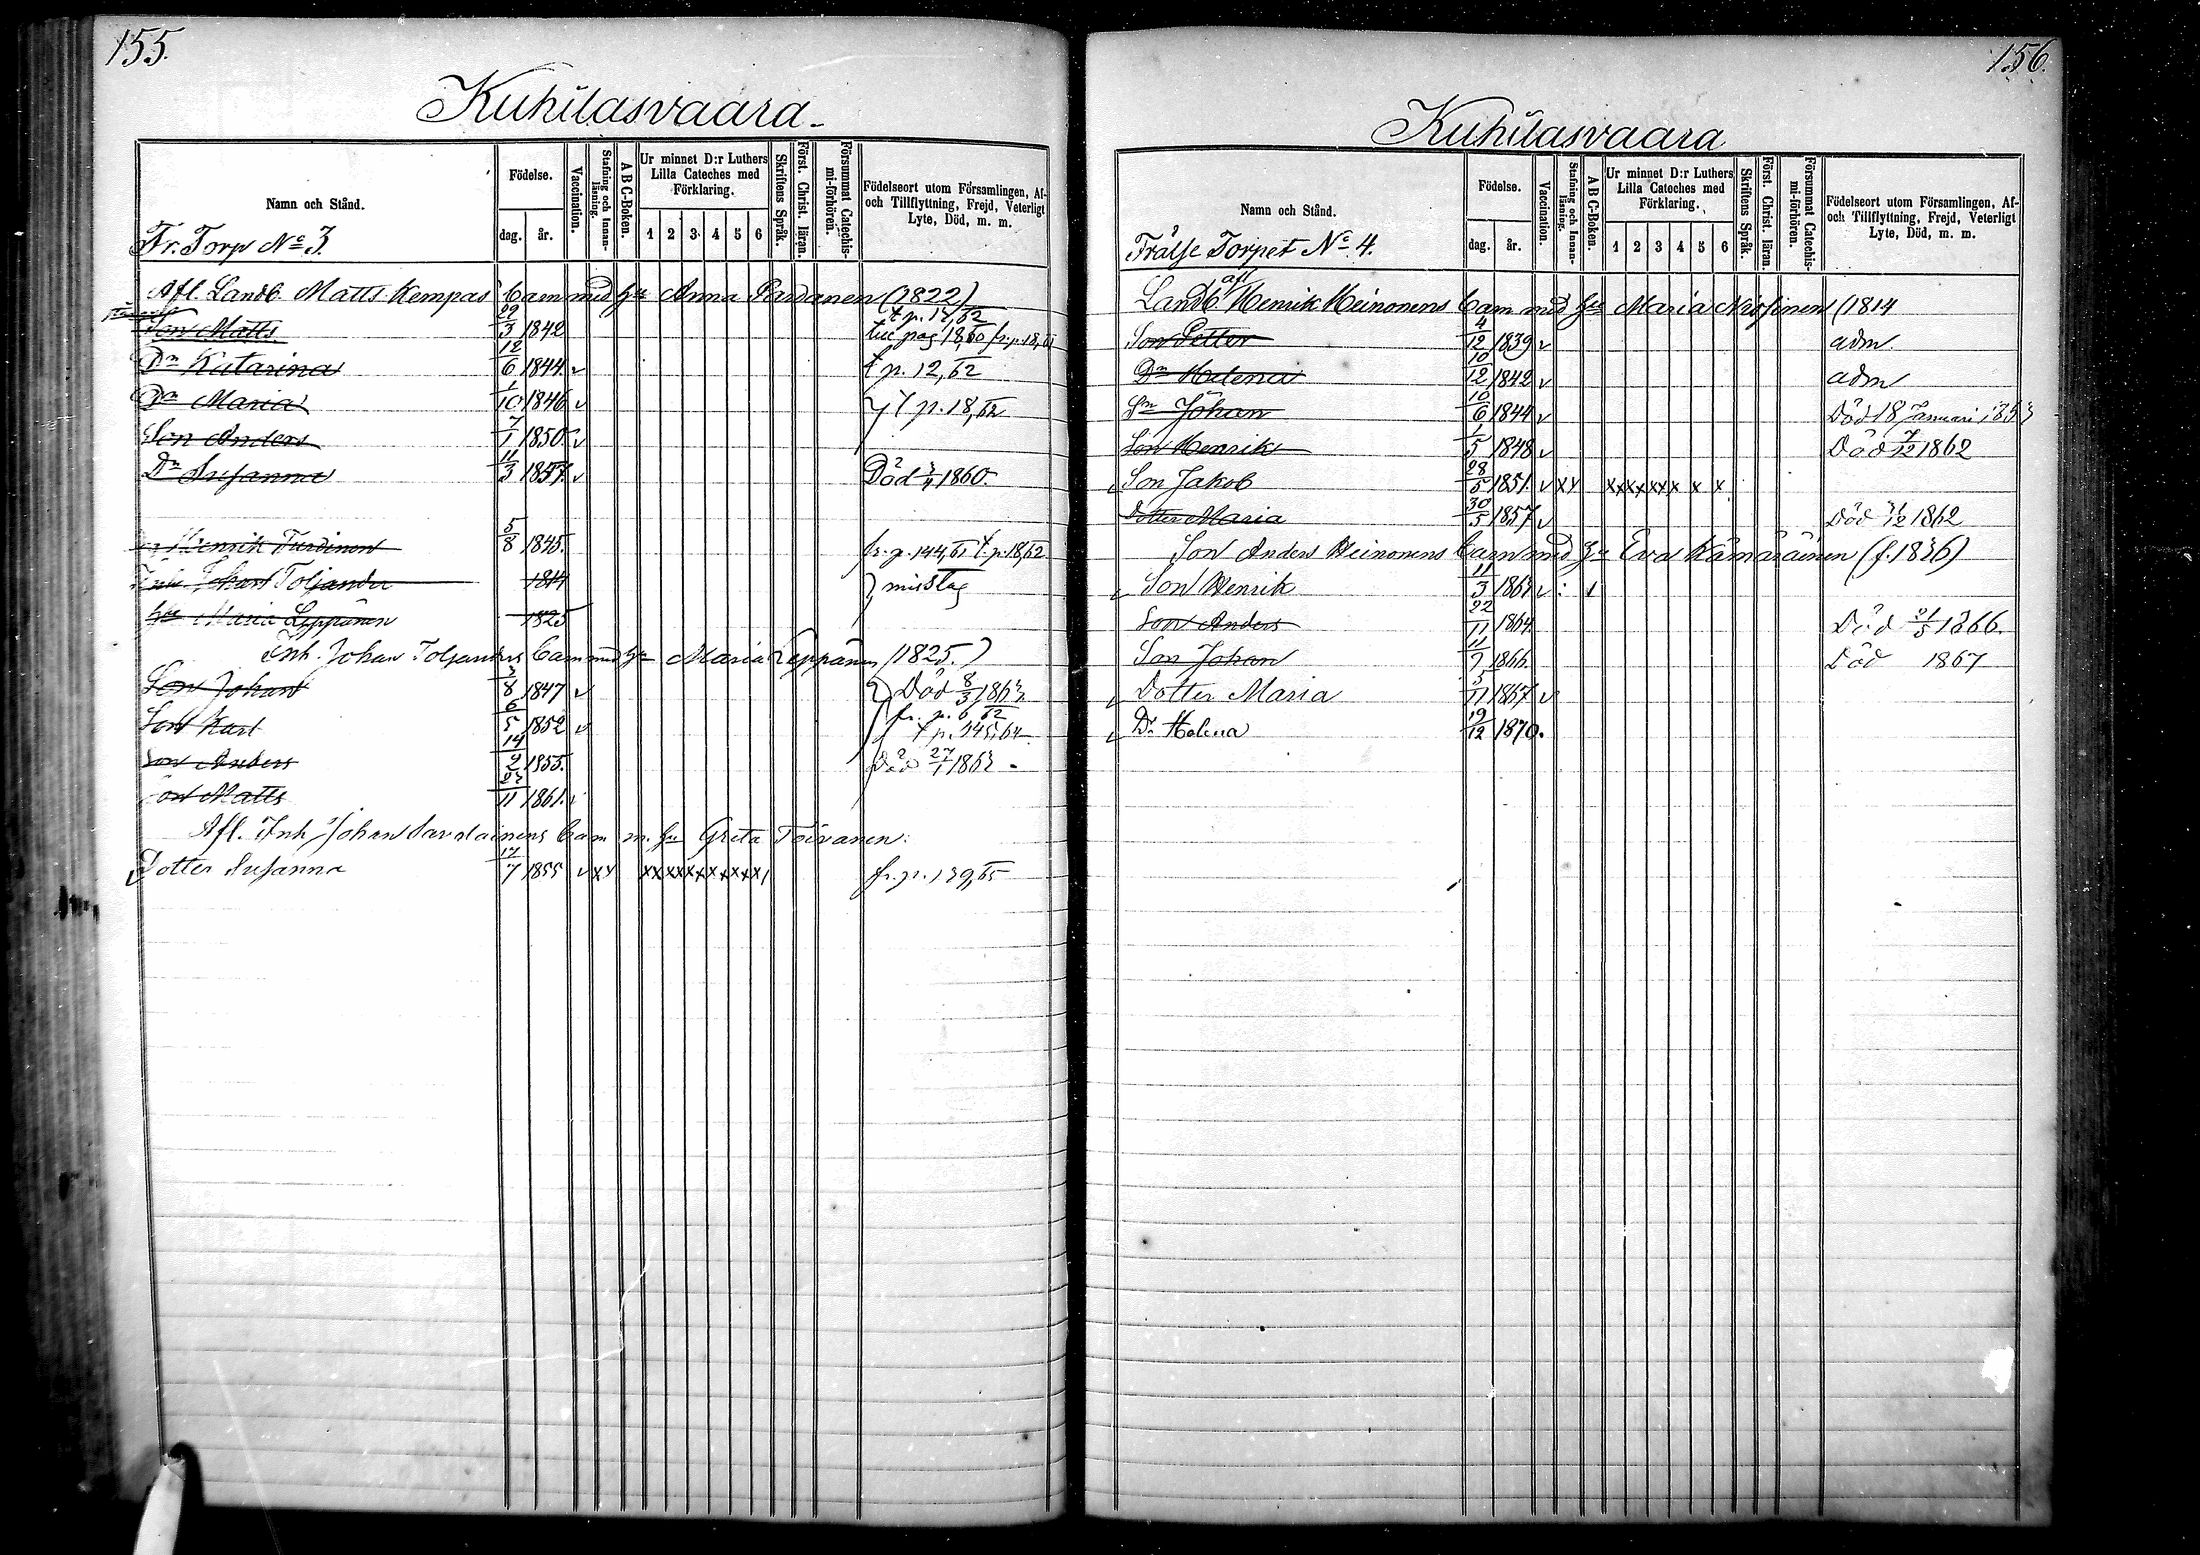 155.
Kuhilasvaara
Namn och Stånd.
Födelse.
dag. år.
Vaccination.
Stafning och Innanläsning.
A B C-Boken.
Ur minnet D:r Luthers Lilla Cateches med Förklaring.
1 2 3 4 5 6
Skriftens Språk.
Först. Christ. läran.
Försummat Catechismi-förhören.
Födelseort utom Församlingen, Af- och Tillflyttning, Frejd, Veterligt Lyte, Död, m. m.
Fr. Torp No 3.
Afl. Landb. Matts Kempas barn med hu Anna Pardanen (1822)
Son Matts 29/3 1842
Dr Katarina 12/6 1844. v t p. 12, 62
Dr Maria 1/10 1846 v t p. 18, 62
Son Anders 7/1 1850. v
Dr Susanna 11/3 1857. v Död 3/4 1860.
Henrik Turdinen 5/8 1845. fr. p. 144, 61 t. p. 18, 62
Inh. Johan Toljander 1814 misstag
hu Maria Leppänen 1825
Inh. Johan Toljanders barn med hu Maria Leppänen (1825.)
Son Johan 3/8 1847 v Död 8/3 1863
Son Karl 6/5 1852 v fr. p. 6, 62
t p. 145, 64
Son Anders 14/2 1855. Död 27/1 1863.
Son Matts 23/11 1861. v
Afl. Inh Johan Savolainens barn m. hu Greta Toivanen:
Dotter Susanna 17/7 1855 v xx xx xx x x x x x fr. p. 139, 65
156.
Kuhilasvaara
Namn och Stånd.
Födelse.
dag. år.
Vaccination.
Stafning och Innanläsning.
A B C-Boken.
Ur minnet D:r Luthers Lilla Cateches med Förklaring.
1 2 3 4 5 6
Skriftens Språk.
Först. Christ. läran.
Försummat Catechismi-förhören.
Födelseort utom Församlingen, Af- och Tillflyttning, Frejd, Veterligt Lyte, Död, m. m.
Frälse Torpet No 4.
afl
Landb Henrik Heinonens barn med hu Maria (1814
Son Petter 4/12 1839 v adm.
Dr Helena 10/12 1842 v adm
Sn Johan 10/6 1844 v Död 18 Januari 1853
Son Henrik 1/5 1848 v Död 7/12 1862
Son Jakob 28/5 1851. v xx xx xx xx x x x
Dotter Maria 30/5 1857 v Död 31/12 1862
Son Anders Heinonens barn med hu Eva Kämäräinen (f. 1836)
Son Henrik 11/3 1863 v
Son Anders 22/11 1864. Död 21/5 1866.
Son Johan 11/9 1866. Död 1867
Dotter Maria 5/11 1867 v
Dr Helena 19/12 1870.